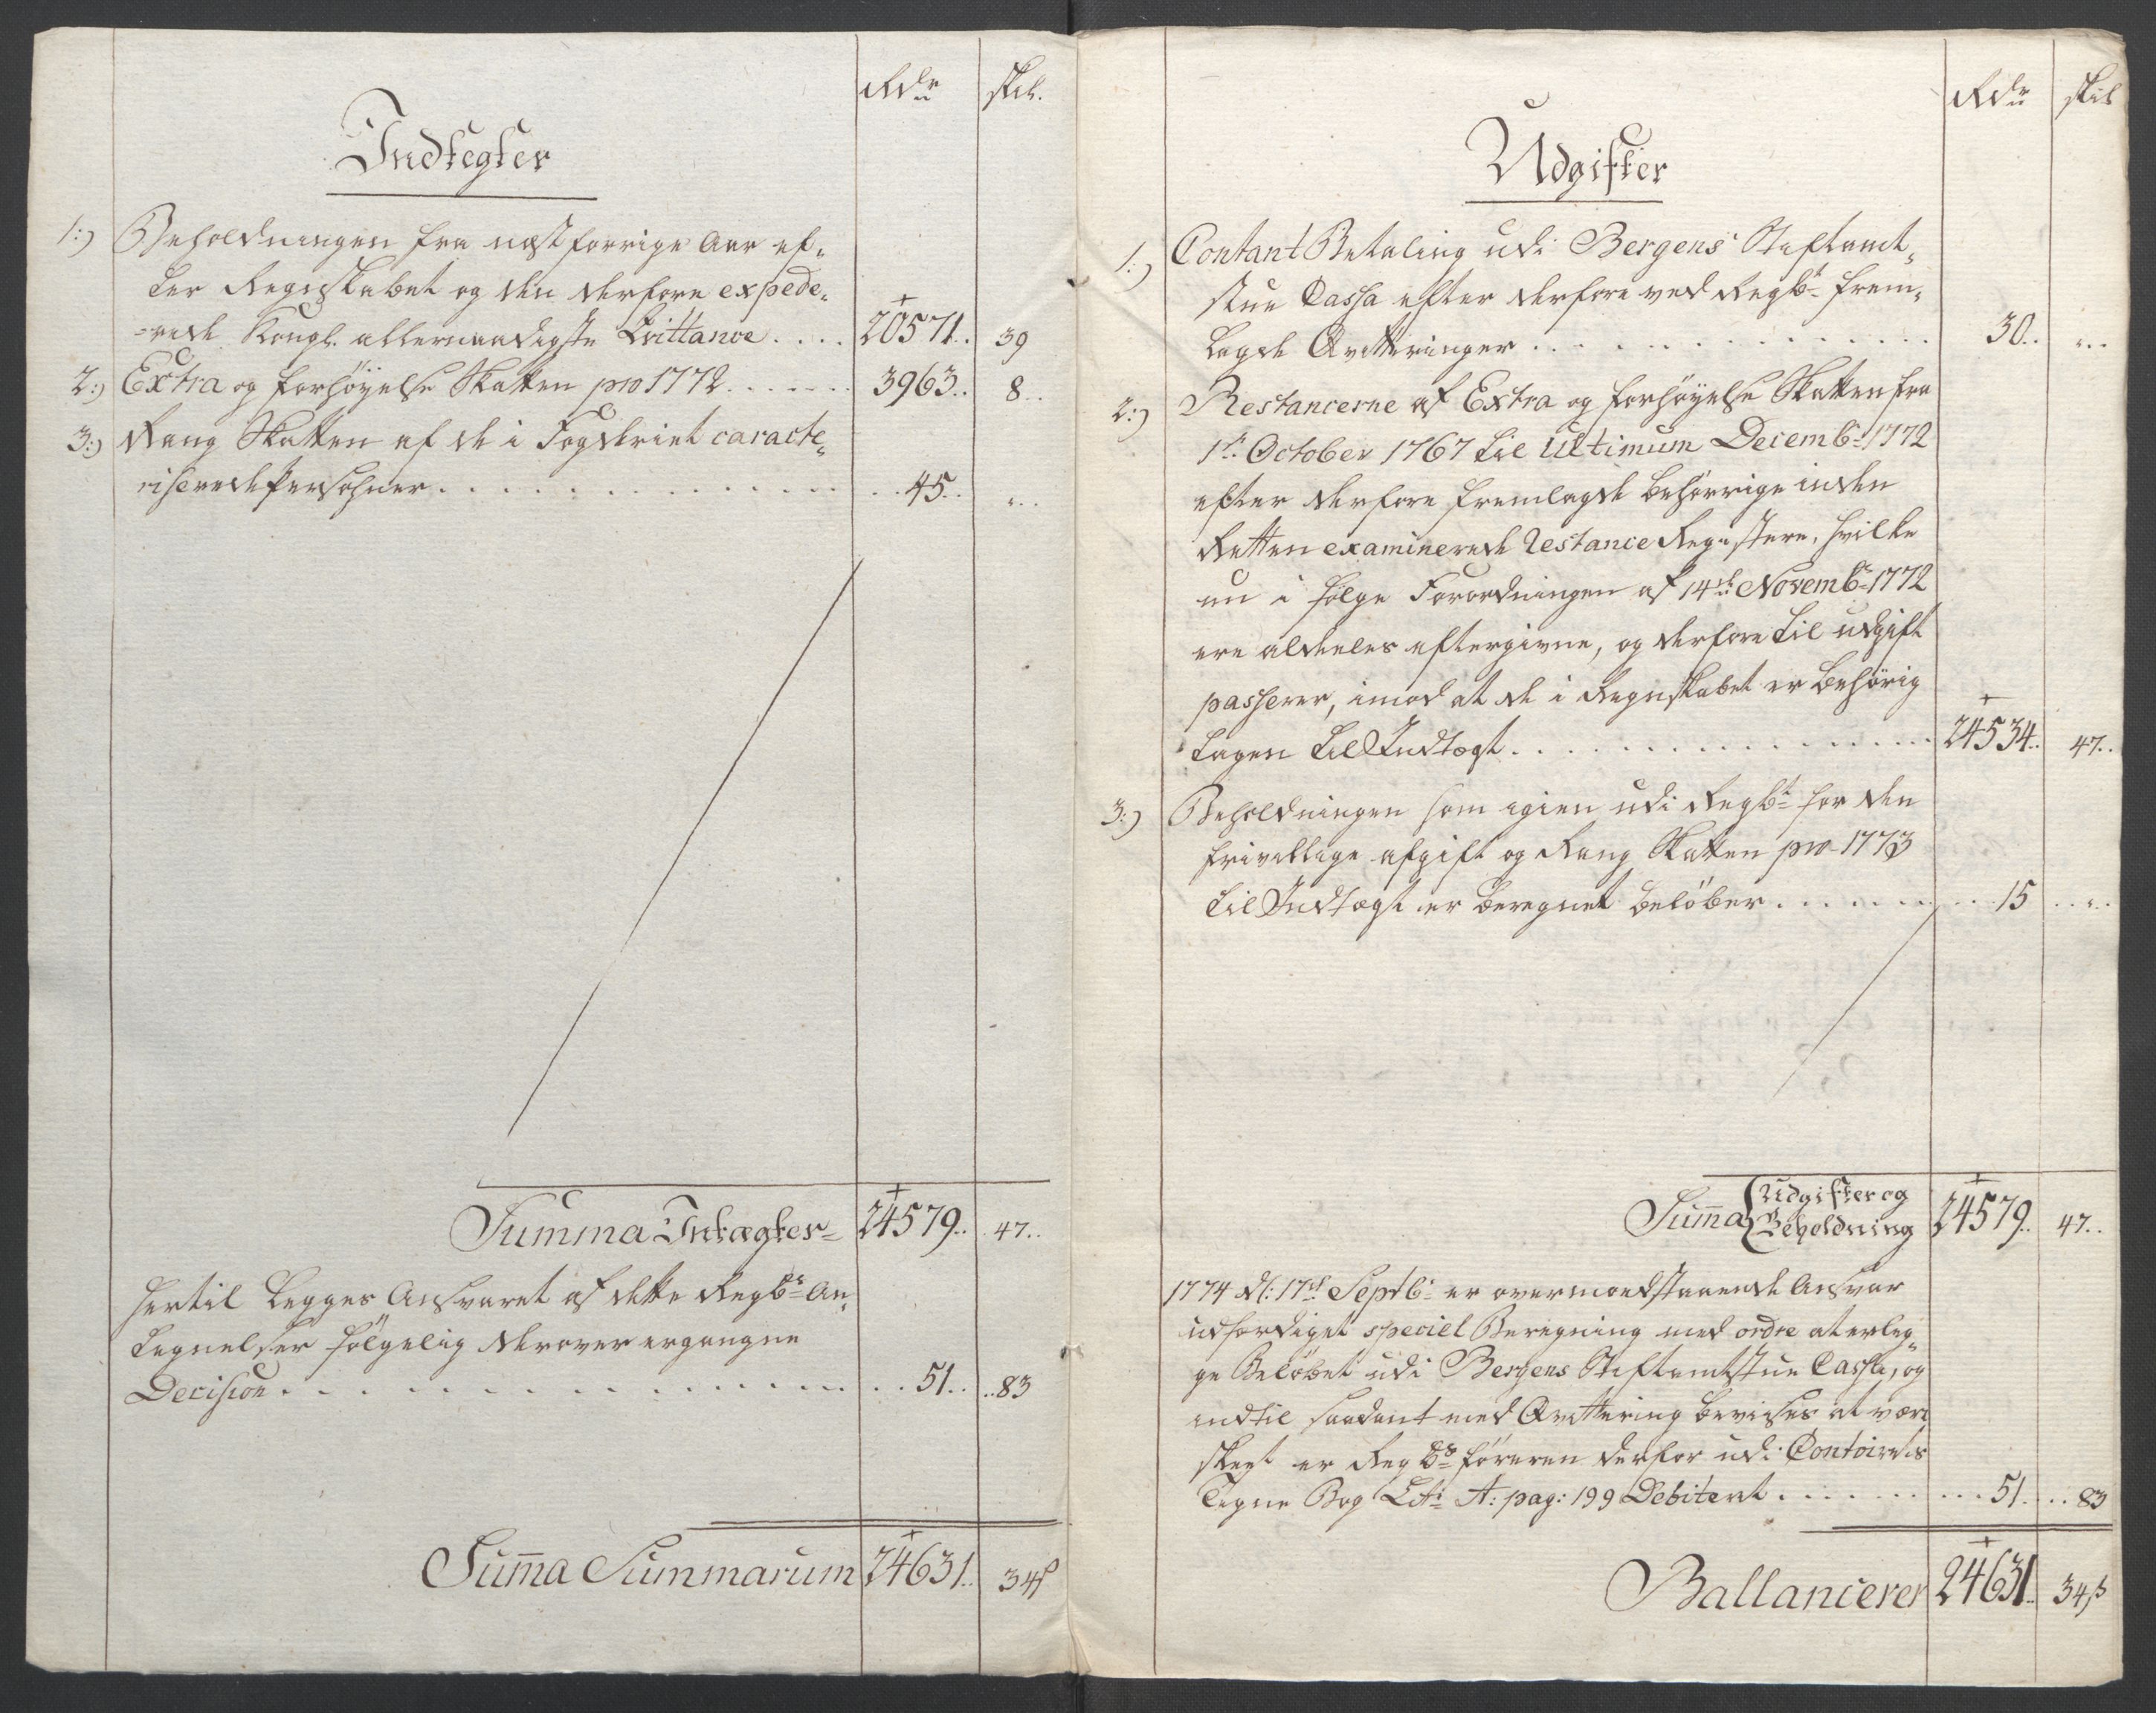 Rdr skil.
Indtegter
1:) Beholdningen fra næstforrige Aar ef-
ter Regnskabet og den derfore expede-
-rede Kongl. allernaadigste Qvittance .... 20571.. 39
2:) Extra og forhøyelse Skatten pro 1772 ...... 3963.. 8..
3:) Rang Skatten af de i Fogderiet caracte-
riserede Persohner .............. 45.. „..
Summa Intægter 24579.. 47..
Hertil Legges Ansvaret af dette Regbs An-
tegnelser følgelig derover ergangne
Decision ................ 51.. ..83
Suma Summarum 24631.. 34ß
Rdr skil
Udgifter
1:) Contant Betaling udi Bergens Stiftamt-
stue Cassa efter derfore ved Regbt frem-
lagde Qvitteringer ............... 30.. „..
2:) Restancerne af Extra og forhøyelse Skatten fra
1te October 1767 til Ultimum Decembr 1772
efter derfore fremlagde behørrige inden
Retten examinerede Restance Registere, hvilke
nu i følge Forordningen af 14de Novembr 1772
ere aldeeles eftergivne, og derfore til udgift
passerer, imod at de i Regnskabet er behørig
tagen til Indtægt ............... 24534.. 47..
3:) Beholdningen som igien udi Regbt for den
frivillige afgift og Rang Skatten pro 1773
til Indtægt er beregnet beløber ........ 15 ..„..
Suma { Udgifter og
Beholdning 24579.. 47..
1774 d: 17de Septbr er overmoedstaaende Ansvar
udfærdiget speciel Beregning med ordre at erleg-
ge Beløbet udi Bergens Stiftamtstue Cassa, og
indtil saadant med Qvittering bevises at være
skeet er Regbs føreren derfor udi Contoirets
Tegne Bog Litr A: pag: 199 Debiteret ........ 51.. ..83
Ballancerer 24631.. 34ß